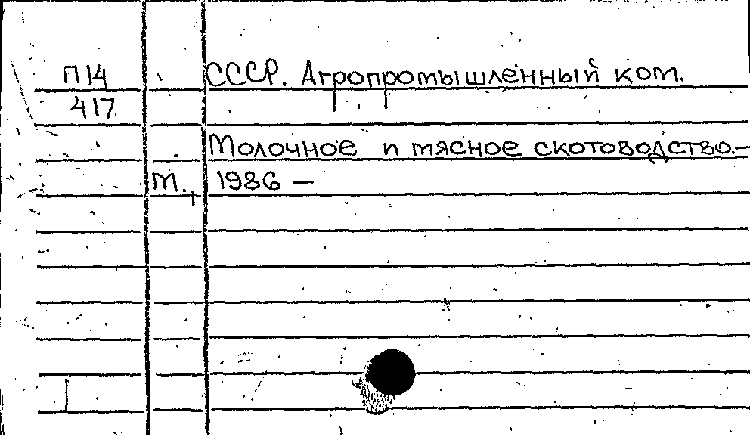 П14 СССР. Агропромышленный ком.
417
Молочное и мясное скотоводство.—
М., 1986 —